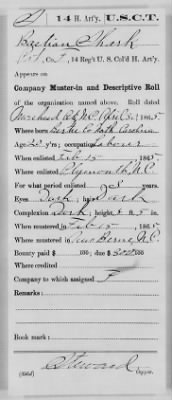 S | 14 H. Art'y. | U.S.C.T.
Bastian Shark
Pvt, Co. F, 14 Reg't U. S. Col'd H. Art'y.
Appears on
Company Muster-in and Descriptive Roll
of the organization named above. Roll dated
Morehead City N.C. Apl 3, 1865
Where born Bertie Co North Carolina
Age 23 y'rs; occupation Laborer
When enlisted Feb 15, 1865
Where enlisted Plymouth N.C.
For what period enlisted 3 years.
Eyes Dark; hair Dark
Complexion Dark; height ft. 5 in.
When mustered in Feb 15, 1865
Where mustered in New Berne N.C.
Bounty paid $ 100; due $ 100
Where credited
Company to which assigned F
Remarks:
Book mark:
Steward
(356d) Copyist.